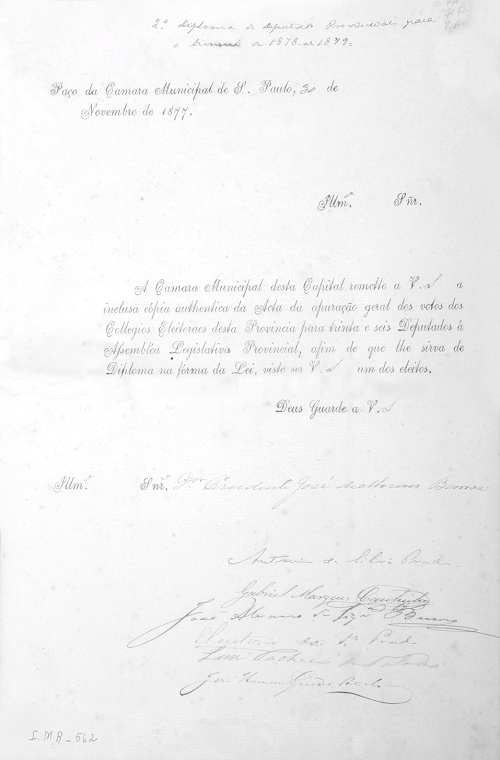 2º diploma de deputado Provinciaes para
o de 1878 a 1879=
Paço da Camara Municipal de S. Paulo, 30 de
Novembro de 1877.
Illmº. Sñr.
A Camara Municipal desta Capital remette a V. S a
inclusa cópia authentica da Acta da apuração geral dos votos dos
Collegios Eleitoraes desta Provincia para trinta e seis Deputados á
Assembléa Legislativa Provincial, afim de que lhe sirva de
Diploma na fórma da Lei, visto ser V. S um dos eleitos.
Deus Guarde a V. S
Illmº. Sñr. Dor Prudente José de Moraes Barros
Antonio da Silva Prado
Gabriel Marques Coutinho
João
Prado
José
I.M.R_562